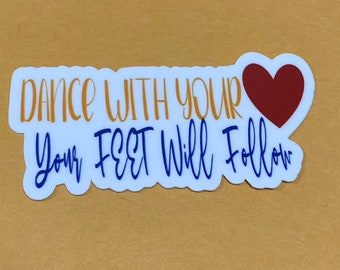 DANCE WITH YOUR
Your FEET Will Follow